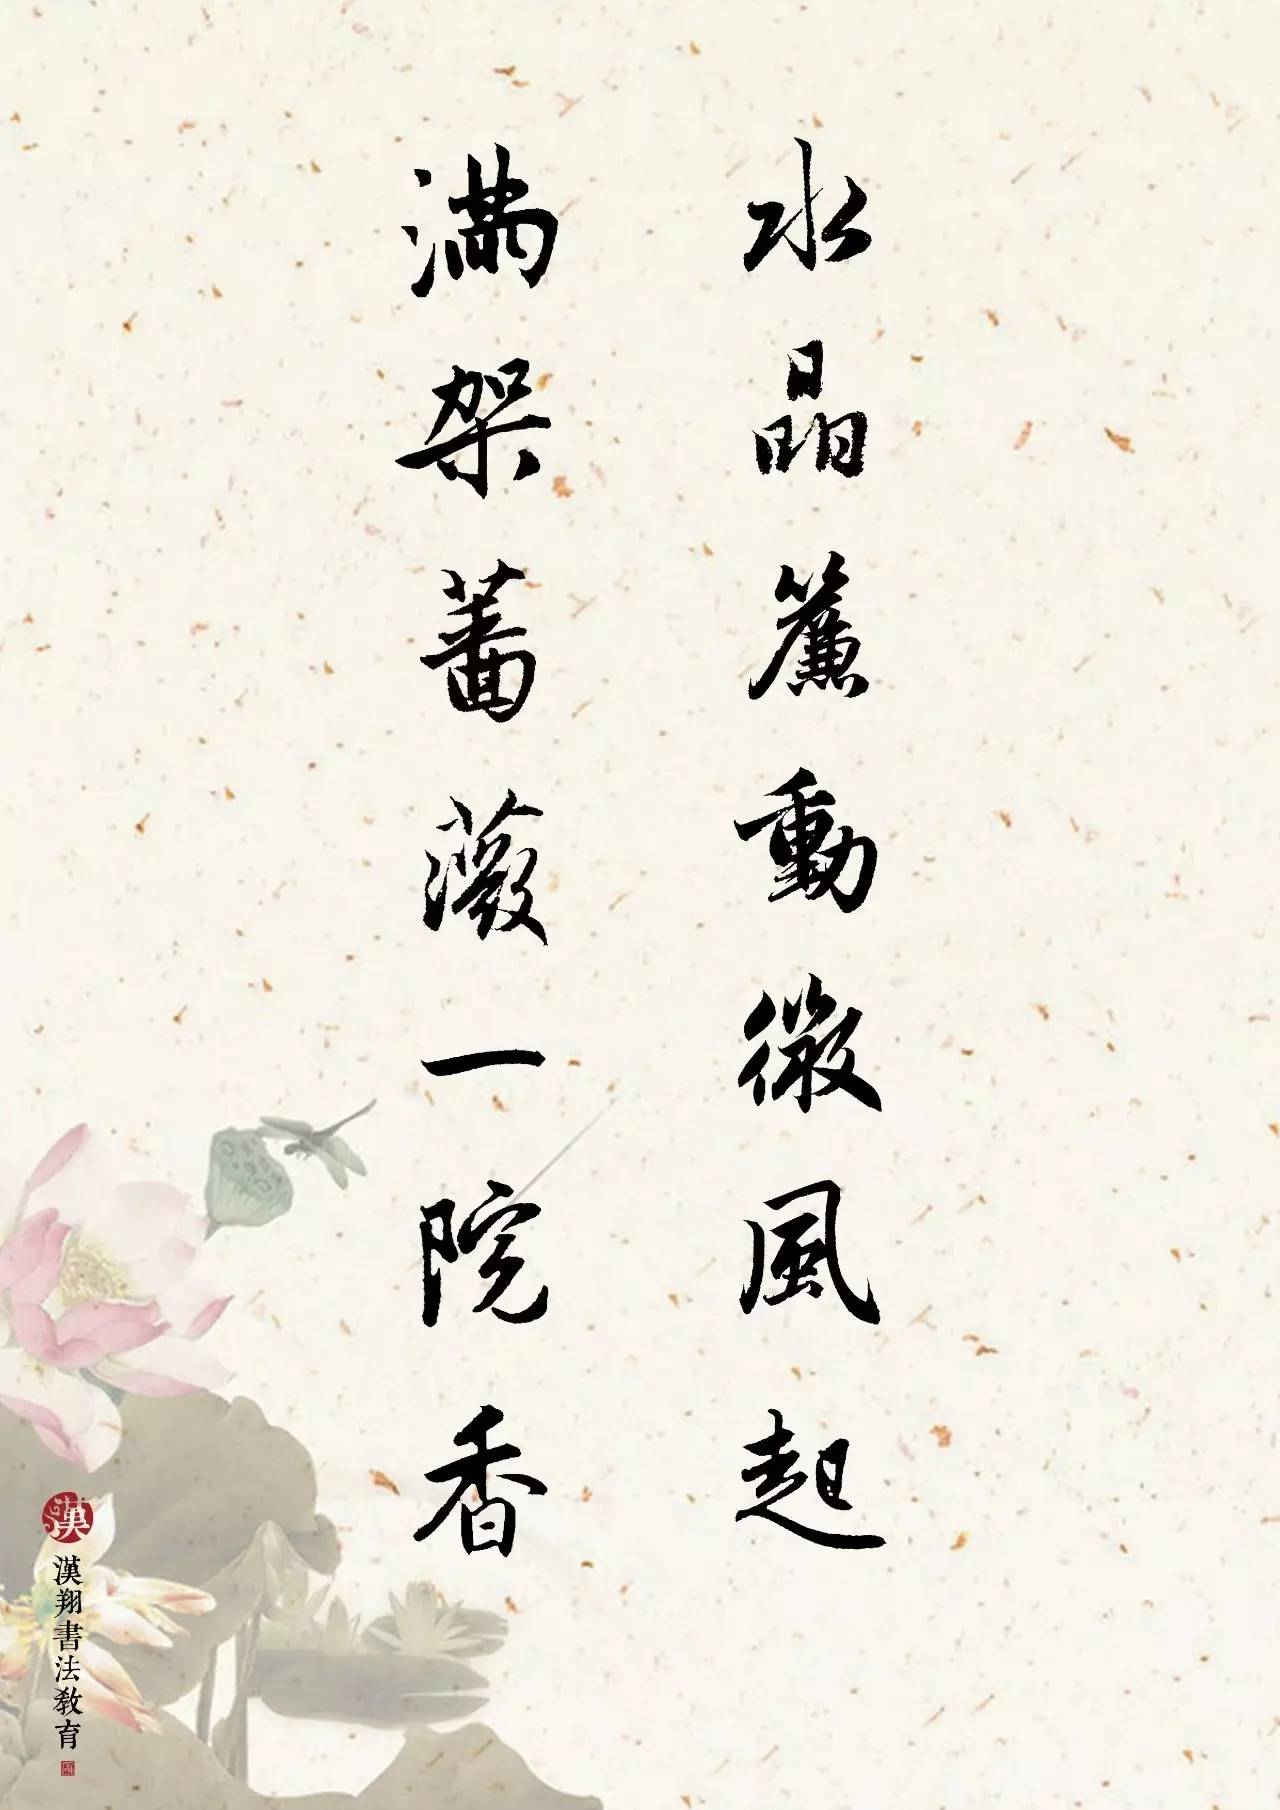 水晶簾動微風起
滿架薔薇一院香
漢
漢翔書法教育